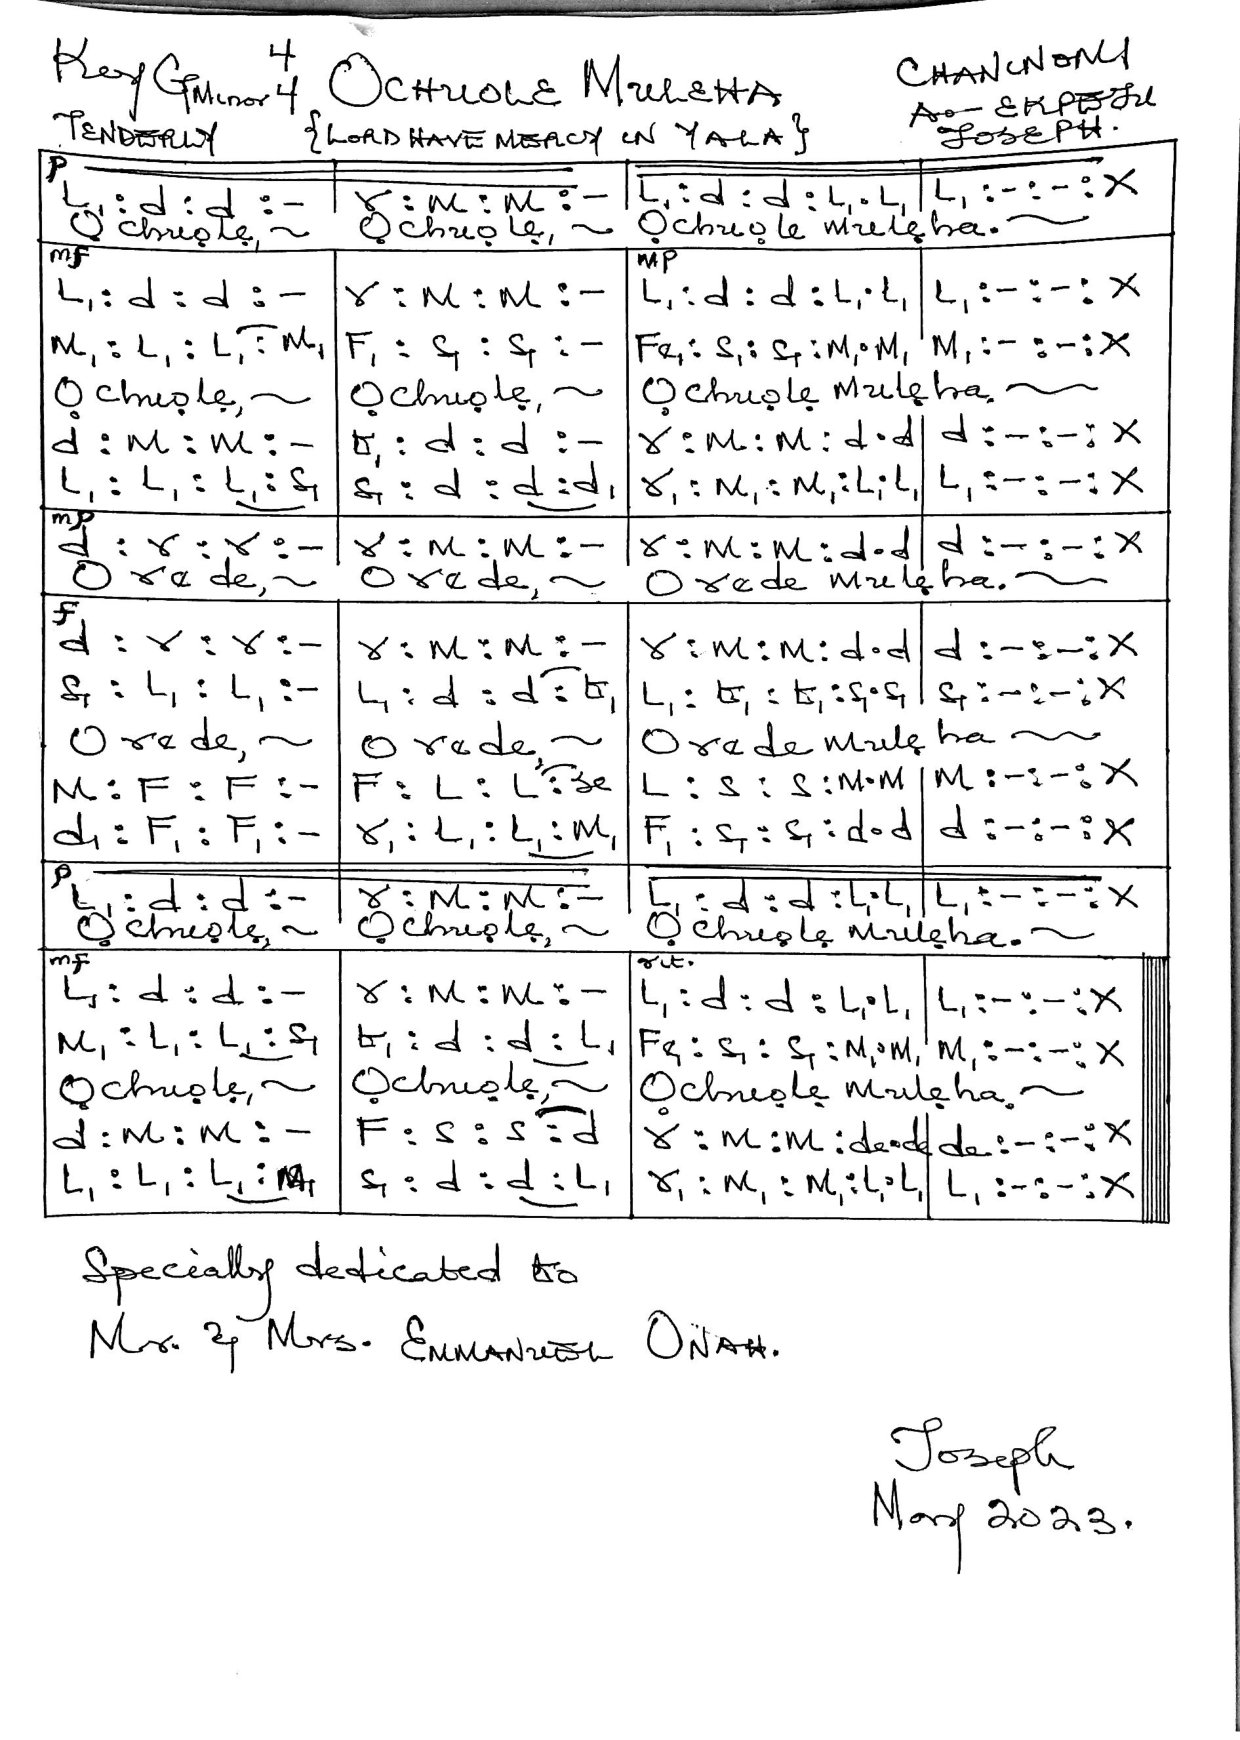 Key G Minor 4/4 OCHUOLE MULEHA CHANCNOMI
TENDERLY {LORD HAVE MERCY IN YALA} A.O. EKPEJU JOSEPH.
p
L₁ : d : d : – | r : M : M : – | L₁ : d : d : L₁ . L₁ | L₁ : – : – : X
Ọchuọlẹ, ~ Ọchuọlẹ, ~ Ọchuọle Mulẹha. ~
mf mp
L₁ : d : d : – | r : M : M : – | L₁ : d : d : L₁ . L₁ | L₁ : – : – : X
M₁ : L₁ : L₁ : M₁ | F₁ : S₁ : S₁ : – | Fe₁ : S₁ : S₁ : M₁ . M₁ | M₁ : – : – : X
Ọchuọlẹ, ~ Ọchuọlẹ, ~ Ọchuọlẹ Mulẹha. ~
d : M : M : – | t₁ : d : d : – | r : M : M : d . d | d : – : – : X
L₁ : L₁ : L₁ : S₁ | S₁ : d : d : d₁ | r₁ : M₁ : M₁ : L₁ . L₁ | L₁ : – : – : X
mp
d : r : r : – | r : M : M : – | r : M : M : d . d | d : – : – : X
O rede, ~ O rede, ~ O rede Mulẹha. ~
f
d : r : r : – | r : M : M : – | r : M : M : d . d | d : – : – : X
S₁ : L₁ : L₁ : – | L₁ : d : d : t₁ | L₁ : t₁ : t₁ : S₁ . S₁ | S₁ : – : – : X
O rede, ~ O rede, ~ O rede Mulẹha ~
M : F : F : – | F : L : L : se | L : S : S : M . M | M : – : – : X
d₁ : F₁ : F₁ : – | r₁ : L₁ : L₁ : M₁ | F₁ : S₁ : S₁ : d . d | d : – : – : X
p
L₁ : d : d : – | r : M : M : – | L₁ : d : d : L₁ . L₁ | L₁ : – : – : X
Ọchuọlẹ, ~ Ọchuọlẹ, ~ Ọchuọlẹ Mulẹha. ~
mf rit.
L₁ : d : d : – | r : M : M : – | L₁ : d : d : L₁ . L₁ | L₁ : – : – : X
M₁ : L₁ : L₁ : S₁ | t₁ : d : d : L₁ | Fe₁ : S₁ : S₁ : M₁ . M₁ | M₁ : – : – : X
Ọchuọlẹ, ~ Ọchuọlẹ, ~ Ọchuọlẹ Mulẹha. ~
d : M : M : – | F : S : S : d | r : M : M : de . de | de : – : – : X
L₁ : L₁ : L₁ : M₁ | S₁ : d : d : L₁ | r₁ : M₁ : M₁ : L₁ . L₁ | L₁ : – : – : X
Specially dedicated to
Mr. & Mrs. EMMANUEL ONAH.
Joseph
May 2023.